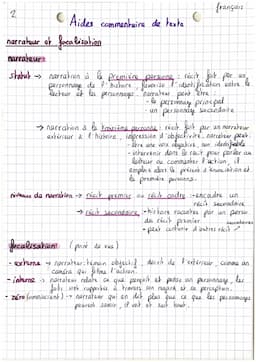 français
2
Aides commentaire de texte
narrateur et focalisation
narrateur
statut → narration à la première personne : récit fait par un
personnage de l'histoire, favorise l'identification entre le
lecteur et le personnage. narrateur peut être :
- le personnage principal
- un personnage secondaire
→ narration à la troisième personne : récit fait par un narrateur
extérieur à l'histoire, impression d'objectivité. narrateur peut :
- être une voix objective, non identifiable
- intervenir dans le récit pour parler au
lecteur ou commenter l'action, il
emploie alors le présent d'énonciation et
la première personne.
niveaux de narration → récit premier ou récit cadre : encadre un
récit secondaire
→ récit secondaire : histoire racontée par un perso.
du récit premier
- peut contenir d'autres récits
focalisation (point de vue)
- externe → narrateur : témoin objectif, décrit de l'extérieur, comme une
caméra qui filme l'action.
- interne → narrateur relate ce que perçoit et pense un personnage, les
faits sont rapportés à travers son regard et sa perception.
- zéro (omniscient) → narrateur qui en dit plus que ce que les personnages
peuvent savoir, il voit et sait tout.